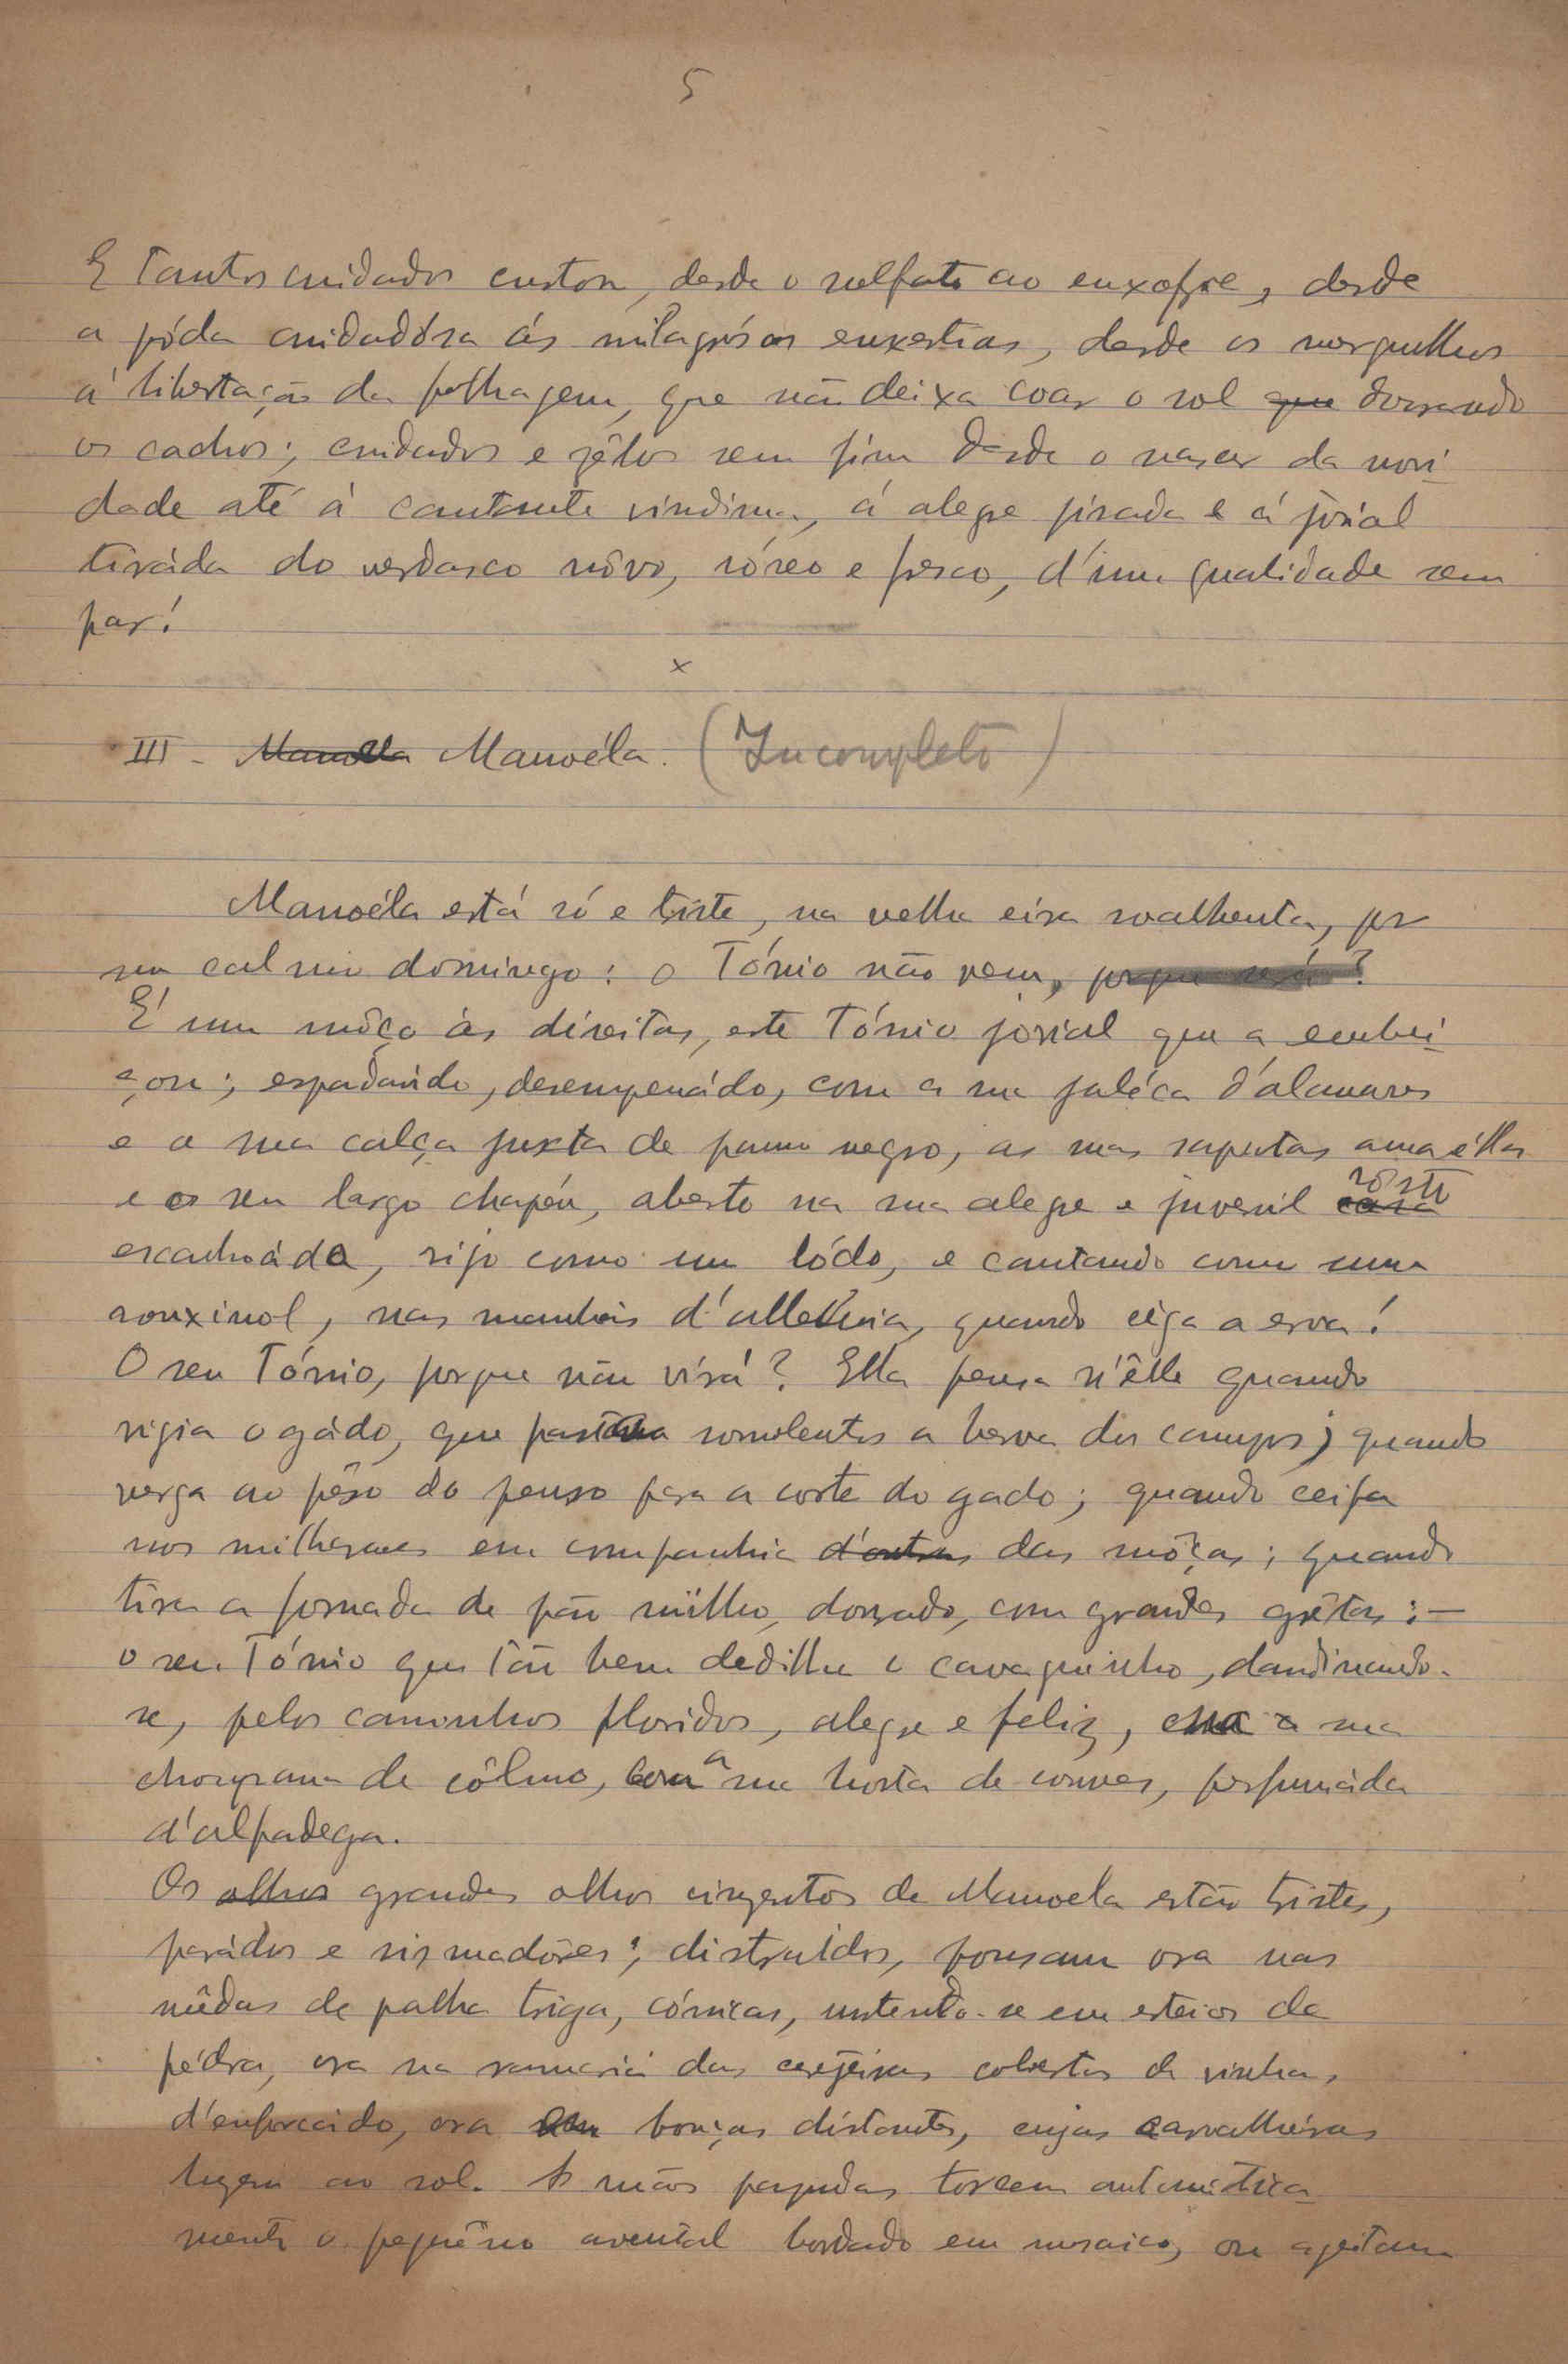 5
E tantos cuidados custou, desde o sulfato ao enxofre, desde
a póda cuidadósa ás milagrósas enxertias, desde os mergulhos
á libertação da folhagem, que não deixa coar o sol que dourando
os cachos; cuidados e zêlos sem fim desde o nascer da novi-
dade até á cantante vindima, á alegre pisada e á jovial
tiráda do verdasco nôvo, róseo e fresco, d'uma qualidade sem
par!
x
III - Manoela Manoéla. (Incompleto)
Manoéla está só e triste, na velha eira soalhenta, por
um calmo domingo: o Tónio não vem, porque será?
É um môço ás direitas, este Tónio jovial que a embei-
çou; espadaúdo, desempenádo, com a sua jaléca d'alamares
e a sua calça justa de panno negro, as suas sapatas amaréllas
e o seu largo chapéu, aberto na sua alegre e juvenil cara rôsto
escanhoáda, rijo como um lódo, e cantando como um
rouxinol, nas manhãs d'alleluia, quando céga a erva!
O seu Tónio, porque não virá? Ella pensa n'êlle quando
vigia o gádo, que pasta somnolento a herva dos campos; quando
verga ao pêso do penso para a corte do gado; quando ceifa
nos milheraes em companhia d'outras das môças; quando
tira a fornada de pão milho, dourado, com grandes grêtas: —
o seu Tónio que tão bem dedilha o cavaquinho, dandinando-
se, pelos caminhos floridos, alegre e feliz, a sua
choupana de côlmo, com a sua horta de couves, perfumáda
d'alfadega.
Os olhos grandes olhos cinzentos de Manoela estão tristes,
parádos e sismadôres; distraídos, pousam ora nas
mêdas de palha triga, cónicas, sustendo-se em esteios de
pédra, ora na ramaria das cerejeiras cobertas de vinha,
d'enforcádo, ora em bouças distantes, cujas carvalheiras
luzem ao sol. As mãos papudas torcem automática-
mente o pequêno avental bordado em mosaico, ou ageitam